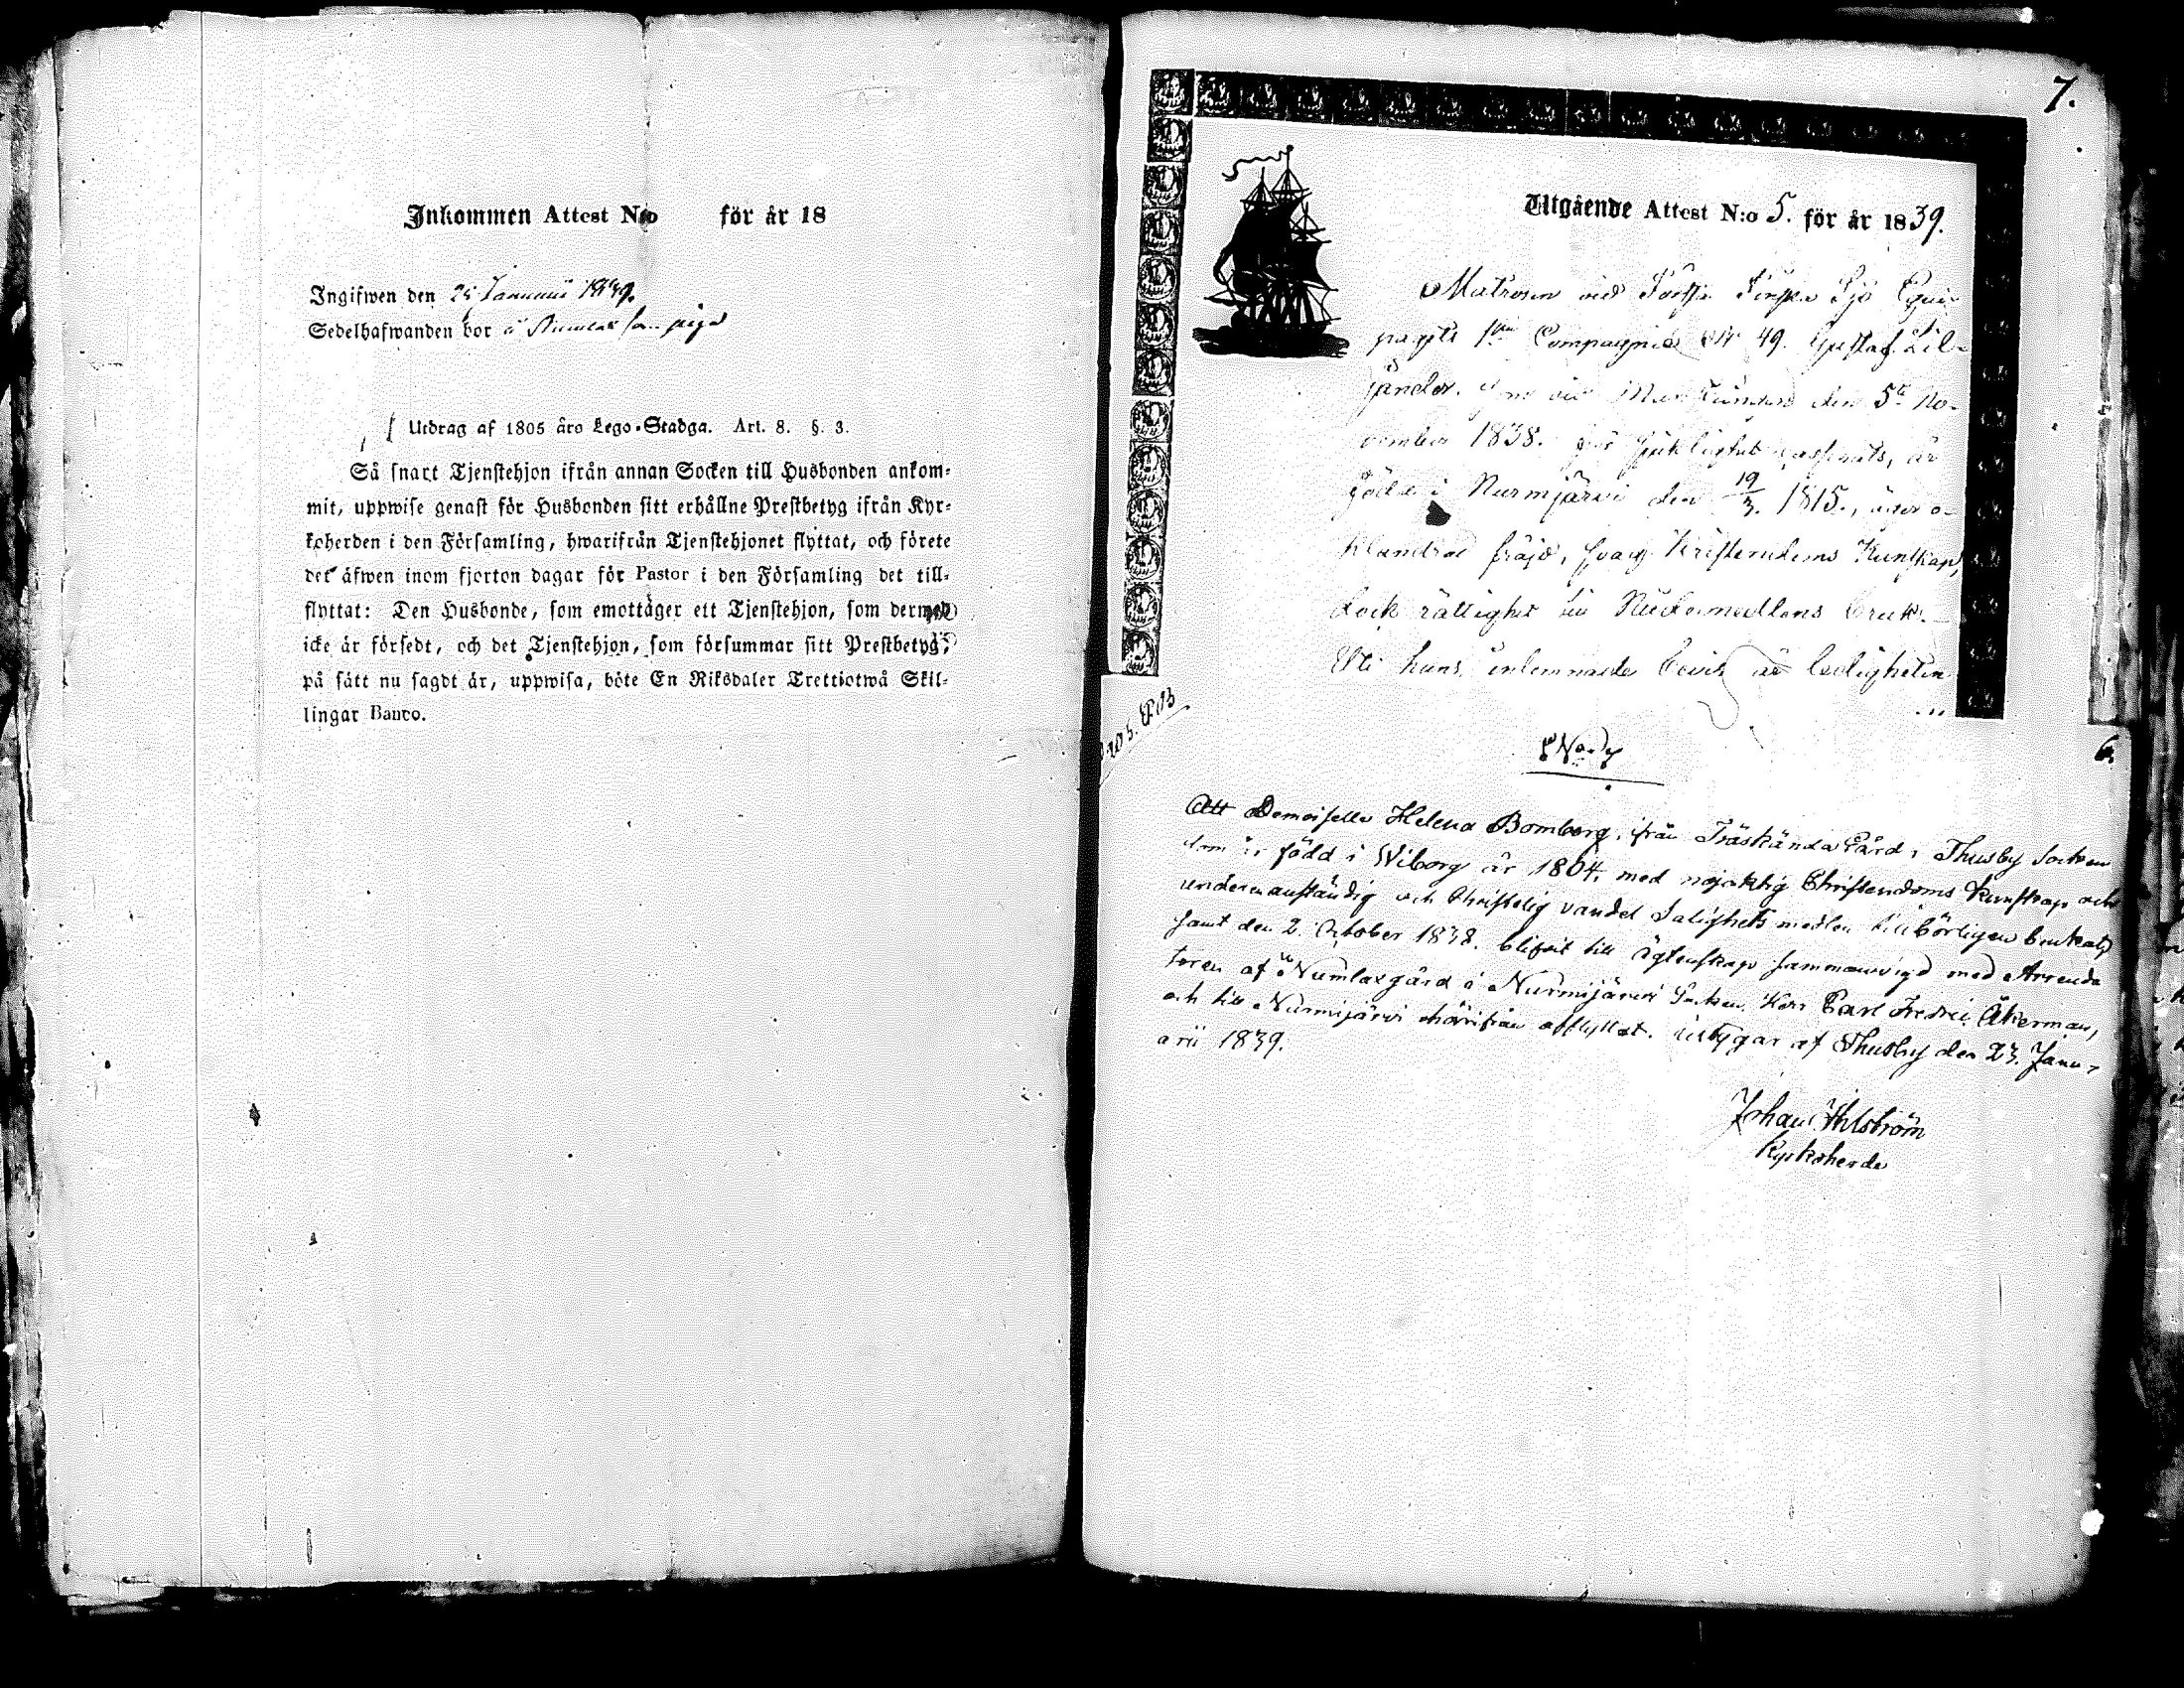 Inkommen Attest N:o för år 18
Ingifwen den 25 Januarii 1839.
Sedelhafwanden bor å Numlax som piga
Utdrag af 1805 års Lego-Stadga. Art. 8. §. 3.
Så snart Tjenstehjon ifrån annan Socken till Husbonden ankom-
mit, uppwise genast för Husbonden sitt erhållne Prestbetyg ifrån Kyr-
koherden i den Församling, hwarifrån Tjenstehjonet flyttat, och förete
det äfwen inom fjorton dagar för Pastor i den Församling det till-
flyttat: Den Husbonde, som emottager ett Tjenstehjon, som dermed
icke är försedt, och det Tjenstehjon, som försummar sitt Prestbetyg,
på sätt nu sagdt är, uppwisa, böte En Riksdaler Trettiotwå Skil-
lingar Banco.
7.
Utgående Attest N:o 5. för år 1839.
Matrosen vid Första Finska Sjö Equi-
pagets 1sta Compagnie N 49. Gustaf Lil-
jander. som vid den 5te No-
vember 1838. för sjuklighet casserats, är
född i Nurmijärvi den 19/3. 1815., äger o-
klandrad fräjd, svag Kristendoms Kunskap,
dock rättighet till Nådemedlens bruk.
Uti hans inlemnade är ledigheten
6.
No 7
Att Demoiselle Helena Bomberg, ifrån Träskända Gård i Thusby Socken
som är född i Wiborg år 1804, med nöjaktig Christendoms kunskap och
under anständig och Christelig vandel Salighets medlen tillbörligen brukat,
samt den 2. October 1838. blifvit till ägtenskap sammanvigd med Arrenda
toren af Numlax gård i Nurmijärvi Socken Herr Carl Fredric Åkerman,
och till Nurmijärvi härifrån afflyttat. betygar af Thusby den 23. Janu-
arii 1839.
Johan Ahlström
Kyrkoherde